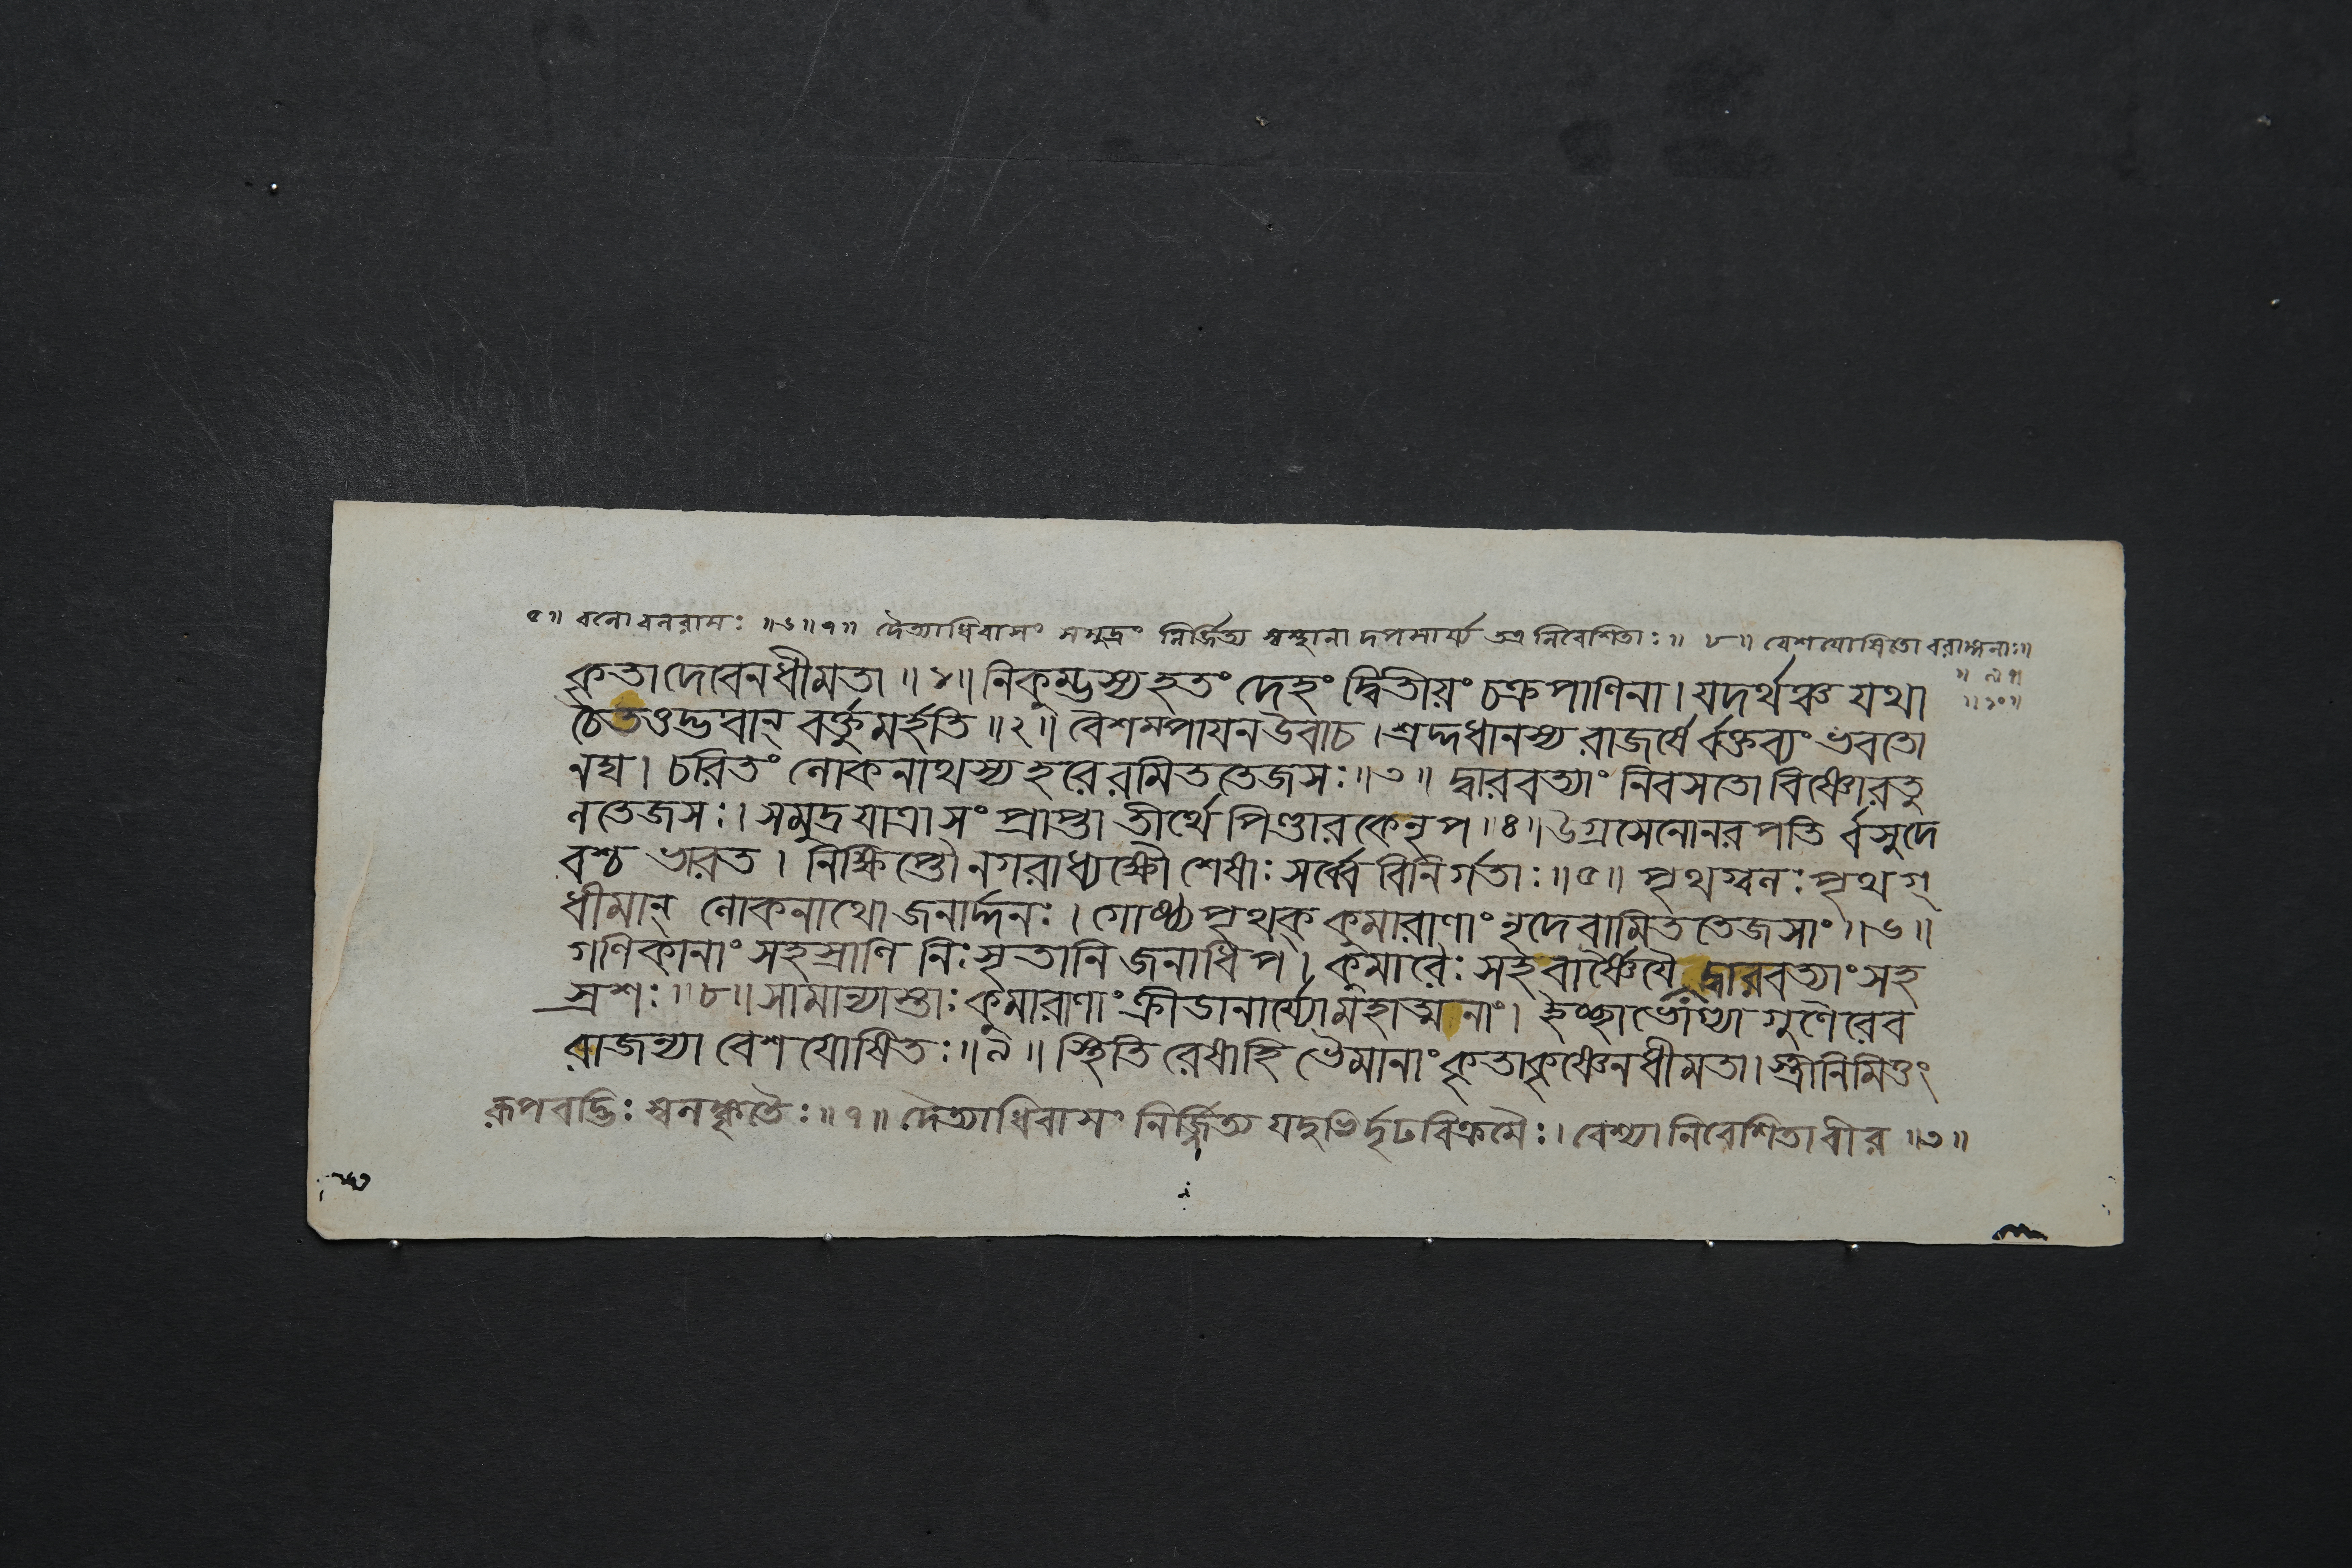 ৫॥ বলো বলরামঃ ॥৬॥৭॥ দৈত্যাধিবাসং সমুদ্রং নির্জ্জিত্য স্বস্থানা দপসার্য্য তত্র নিবেশিতাঃ॥ ৮॥ বেশযোষিতো বরাঙ্গনাঃ॥
॥ ৯॥
॥১০॥
কৃতাদেবেনধীমতা ॥১॥ নিকুম্ভস্যহতং দেহং দ্বিতীয়ং চক্রপাণিনা। যদর্থঞ্চ যথা
চৈতৎতদ্ভবান্ বর্ক্তুমর্হতি ॥২॥ বৈশম্পায়ন উবাচ। শ্রদ্দধানস্য রাজর্ষে র্বক্তব্যং ভবতো
নঘ। চরিতং লোকনাথস্য হরেরমিততেজসঃ॥৩॥ দ্বারবত্যাং নিবসতো বিষ্ণোরতু
লতেজসঃ। সমুদ্রযাত্রাসংপ্রাপ্তা তীর্থে পিণ্ডারকেনৃপ॥৪॥ উগ্রসেনোনরপতি র্বসুদে
বশ্চ ভারত। নিক্ষিপ্তৌ নগরাধ্যক্ষৌ শেষাঃ সর্ব্বে বিনির্গতাঃ॥৫॥ পৃথগ্বলঃ পৃথগ্
ধীমান্ লোকনাথো জনার্দ্দনঃ। গোষ্ঠ্যপৃথক্ কুমারাণাং নৃদেবামিততেজসাং॥৬॥
গণিকানাং সহস্রাণি নিঃসৃতানি জনাধিপ। কুমারৈঃ সহবার্ষ্ণেয়ৈ দ্বারবত্যাং সহ
স্রশঃ॥৮॥ সামান্যাস্তাঃ কুমারাণাং ক্রীডানার্য্যোমহাত্মনাং। ইচ্ছাভোগ্যা গুণৈরেব
রাজন্যা বেশযোষিতঃ॥৯॥ স্থিতিরেষাহি ভৈমানাং কৃতাকৃষ্ণেনধীমতা। স্ত্রীনিমিত্তং
রূপবদ্ভিঃ স্বলঙ্কৃতৈঃ॥৭॥ দৈত্যাধিবাসং নির্জ্জিত্য যদুভির্দৃঢবিক্রমৈঃ। বেশ্যা নিবেশিতা বীর ॥৩॥